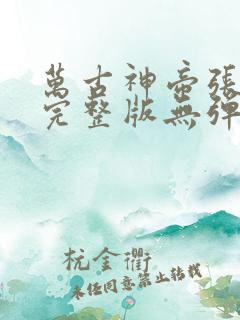 萬古神帝張
完整版無彈
杭金衢
未经同意禁止转载